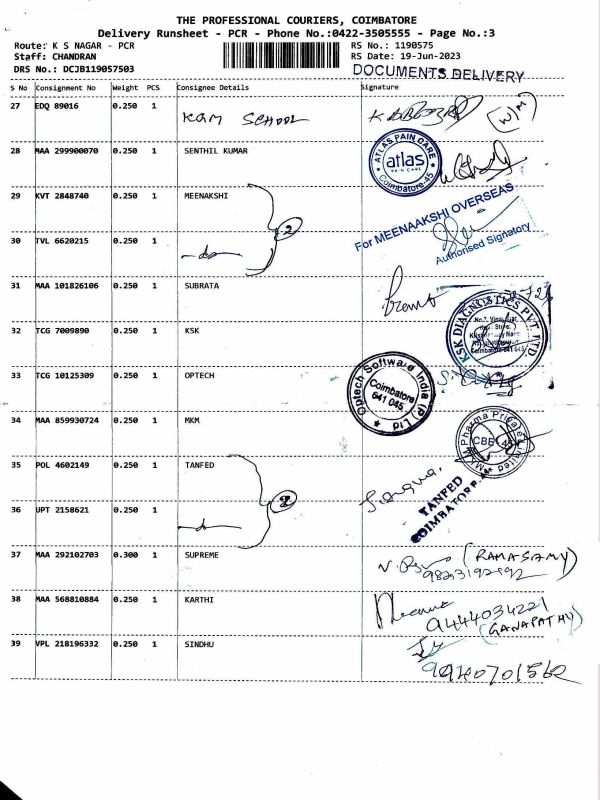 THE PROFESSIONAL COURIERS, COIMBATORE
Delivery Runsheet - PCR - Phone No.:0422-3505555 - Page No.:3
Route: K S NAGAR - PCR RS No.: 1190575
Staff: CHANDRAN RS Date: 19-Jun-2023
DRS No.: DCJB119057503 DOCUMENTS DELIVERY
S No Consignment No Weight PCS Consignee Details Signature
27 EDQ 89016 0.250 1 KGM SCHOOL
28 MAA 299900070 0.250 1 SENTHIL KUMAR
ATLAS PAIN CARE
atlas
PAIN CARE
Coimbatore-45
29 KVT 2848740 0.250 1 MEENAKSHI
For MEENAAKSHI OVERSEAS
2
30 TVL 6620215 0.250 1 -do-
Authorised Signatory
31 MAA 101826106 0.250 1 SUBRATA
32 TCG 7009890 0.250 1 KSK
KSK DIAGNOSTICS PVT. LTD
Coimbatore 641 045
33 TCG 10125309 0.250 1 OPTECH
Optech Software India (P) Ltd
Coimbatore
641 045
34 MAA 859930724 0.250 1 MKM
MKM Pharma Private Limited
CBE 45
35 POL 4602149 0.250 1 TANFED
TANFED
COIMBATORE
2
36 UPT 2158621 0.250 1 -do-
37 MAA 292102703 0.300 1 SUPREME
(RAMASAMY)
38 MAA 568810884 0.250 1 KARTHI
9444034221
(GANAPATHY)
39 VPL 218196332 0.250 1 SINDHU
9940701562